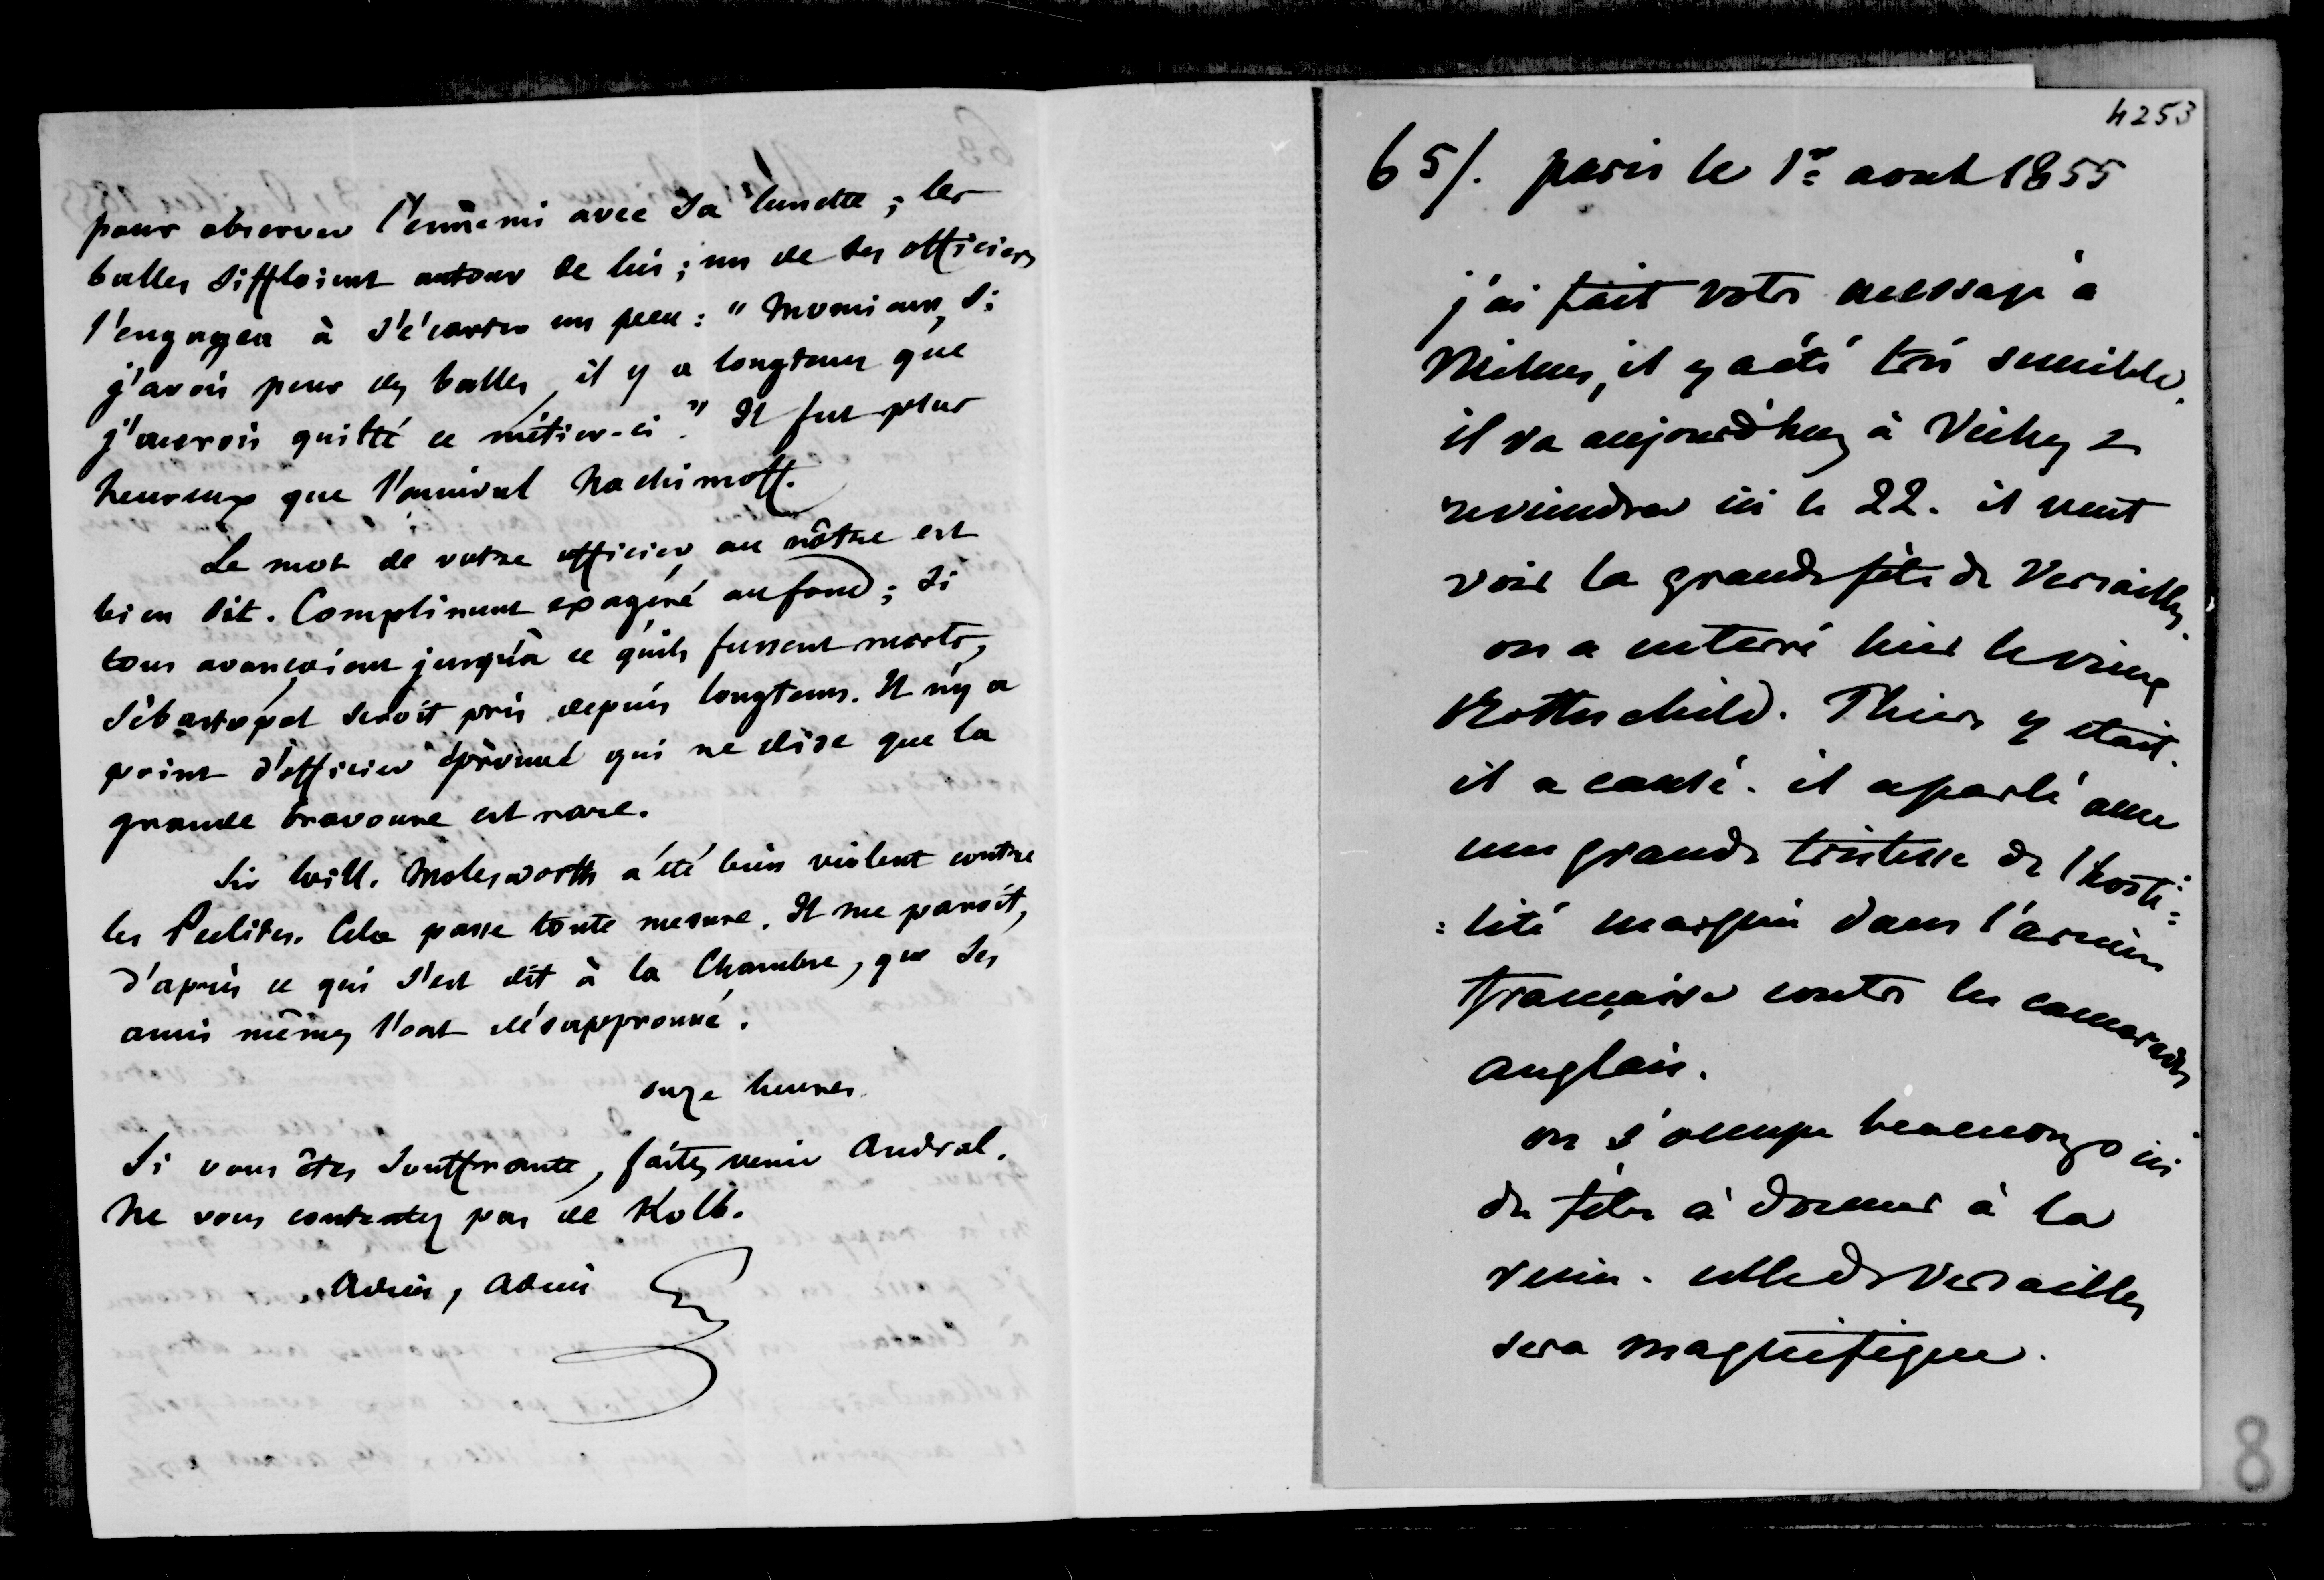 pour observer l'ennemi avec sa lunette ; les
balles siffloient autour de lui ; un de ses officiers
l'engagea à s'écarter un peu : " Monsieur, si
j'avois peur des balles, il y a longtems que
j'aurois quitté ce métier-ci." Il fut plus
heureux que l'amiral Nachimoff.
Le mot de votre officier au nôtre est
bien dit. Compliment exagéré au fond ; si
tous avançoient jusqu'à ce qu'ils fussent morts,
Sébastopol seroit pris depuis longtems. Il n'y a
point d'officier éprouvé qui ne dise que la
grande bravoure est rare.
Sir Will. Molesworth a été bien violent contre
les Peelites. Cela passe toute mesure. Il me paroît,
d'après ce qui s'est dit à la Chambre, que ses
amis mêmes l'ont désapprouvé.
onze heures
Si vous êtes souffrante, faites venir Andral.
Ne vous contentez pas de Kolb.
Adieu, Adieu
4253
65/. paris le 1er aout 1855
j'ai fait votre message à
il y a été très sensible.
il va aujourd'huy à Vichy &
reviendra ici le 22. il veut
voir la grande fête de Versailles.
on a enterré hier le vieux
Rothschild. Thiers y était.
il a causé. il a parlé avec
une grande tristesse de l'hosti=
=lité marquée dans l'armée
française contre les camarades
anglais.
on s'occupe beaucoup ici
des fêtes à donner à la
reine. celle de Versailles
sera magnifique.
8